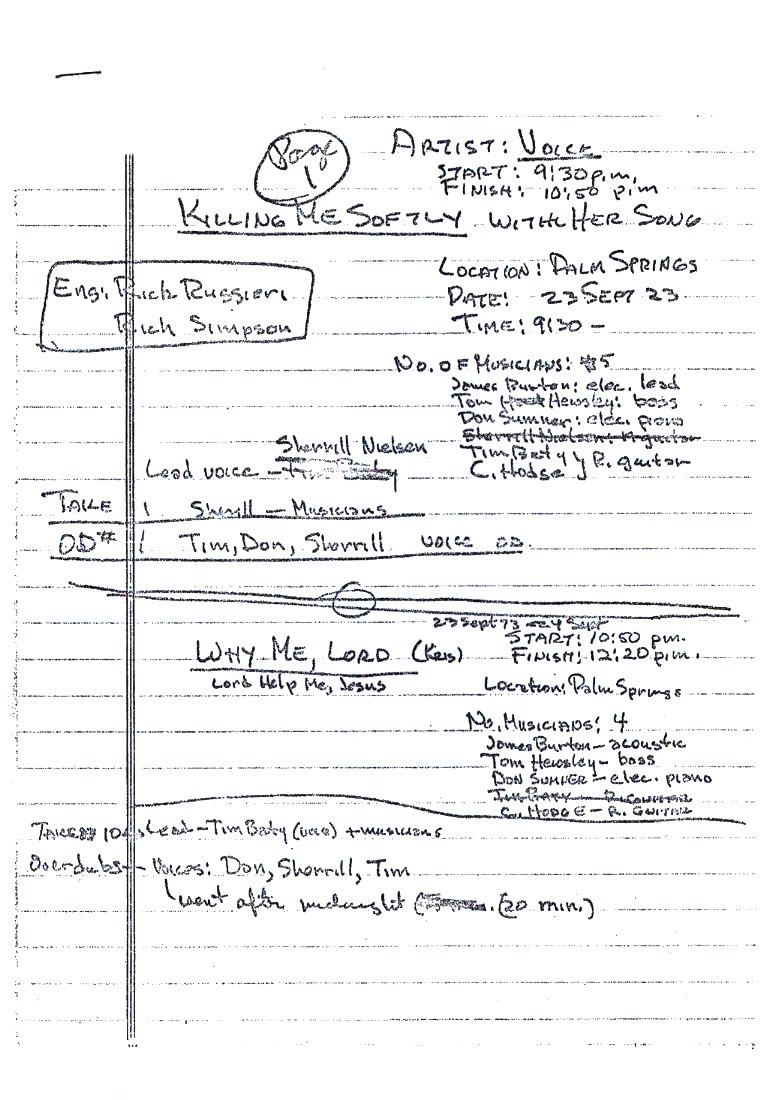 Page
1
ARTIST: VOICE
START: 9:30 p.m.
FINISH: 10:50 p.m
KILLING ME SOFTLY WITH HER SONG
LOCATION: PALM SPRINGS
Eng: Rich Ruggieri
DATE: 23 SEPT 23
Rich Simpson
TIME: 9:30 -
NO. OF MUSICIANS: 5
James Burton: elec. lead
Tom Hensley: bass
Don Sumner: elec. piano
Sherrill Nielsen: R. guitar
Sherrill Nielsen
Tim Baty } R. guitar
Lead voice - Tim Baty
C. Hodge
TAKE 1 Sherrill - Musicians
OD# 1 Tim, Don, Sherrill voice OD.
23 Sept 73 - 24 Sept
START: 10:50 pm.
WHY ME, LORD (Kris)
FINISH: 12:20 p.m.
Lord Help Me, Jesus
Location: Palm Springs
No. Musicians: 4
James Burton - acoustic
Tom Hensley - bass
DON SUMNER - elec. piano
TIM BATY - R. GUITAR
C. HODGE - R. GUITAR
Lead - Tim Baty (voice) + musicians
Overdubs - Voices: Don, Sherrill, Tim
went after midnight (20 min.)